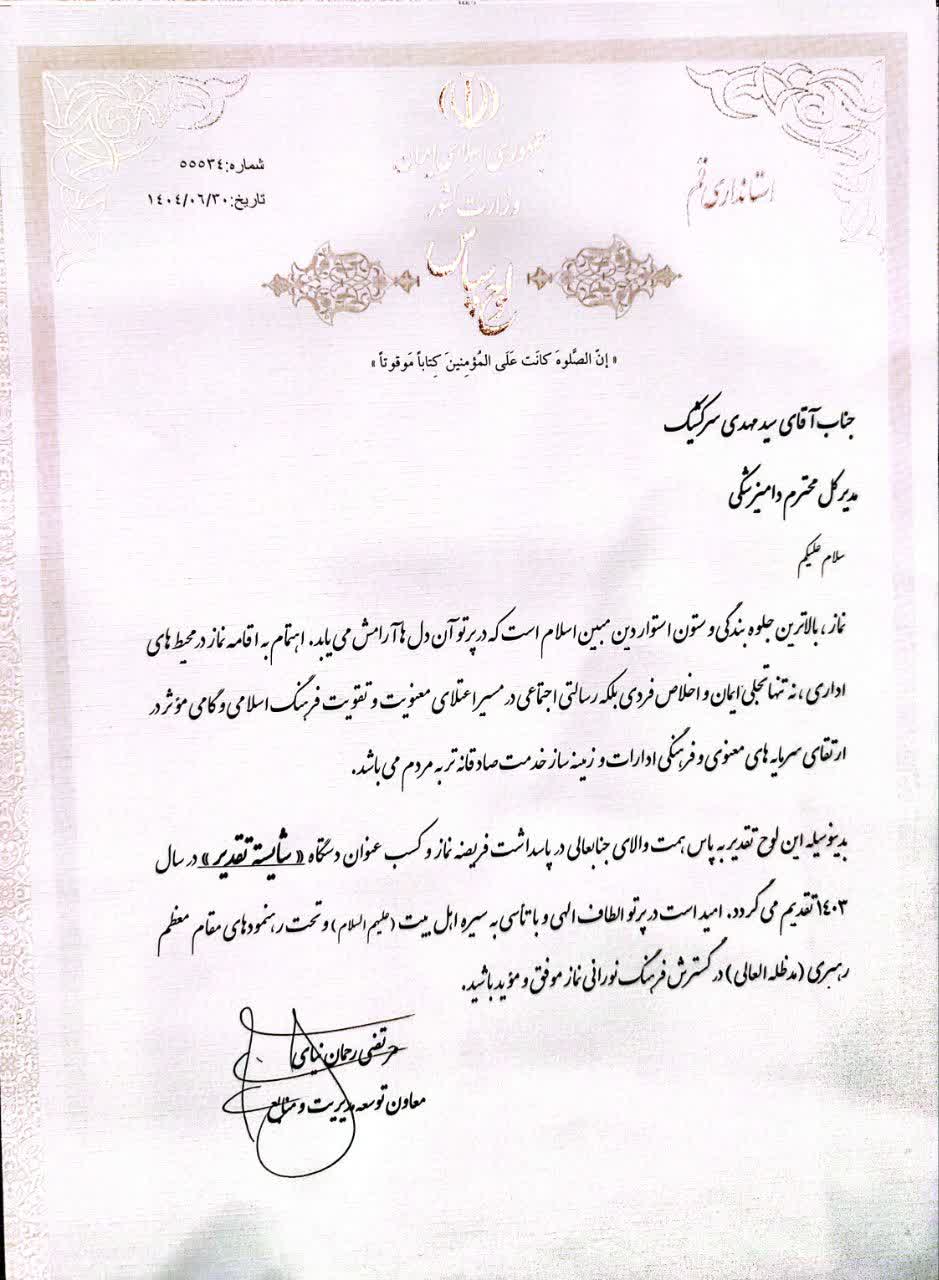 جمهوری اسلامی ایران
وزارت کشور
استانداری قم
شماره: ۵۵۵۳۴
تاریخ: ۱۴۰۴/۰۶/۳۰
لوح سپاس
« إنّ الصَّلوهَ کانَت عَلَی المُؤمِنینَ کِتاباً مَوقوتاً »
جناب آقای سید مهدی سرکشیک
مدیر کل محترم دامپزشکی
سلام علیکم
نماز، بالاترین جلوه بندگی و ستون استوار دین مبین اسلام است که در پرتو آن دل ها آرامش می یابد. اهتمام به اقامه نماز در محیط های
اداری، نه تنها تجلی ایمان و اخلاص فردی بلکه رسالتی اجتماعی در مسیر اعتلای معنویت و تقویت فرهنگ اسلامی و گامی مؤثر در
ارتقای سرمایه های معنوی و فرهنگی ادارات و زمینه ساز خدمت صادقانه تر به مردم می باشد.
بدینوسیله این لوح تقدیر به پاس همت والای جنابعالی در پاسداشت فریضه نماز و کسب عنوان دستگاه «شایسته تقدیر» در سال
۱۴۰۳ تقدیم می گردد. امید است در پرتو الطاف الهی و با تأسی به سیره اهل بیت (علیهم السلام) و تحت رهنمودهای مقام معظم
رهبری (مدظله العالی) در گسترش فرهنگ نورانی نماز موفق و مؤید باشید.
مرتضی رحمان نیای
معاون توسعه مدیریت و منابع